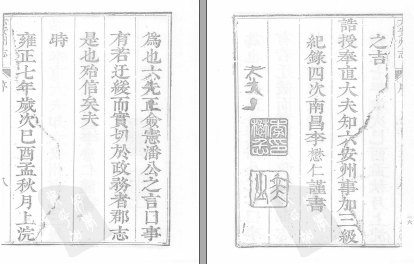 為也六先正僉憲潘公之言曰事
有若迂緩而實切於政務者郡志
是也殆信矣夫
時
雍正七年歲次己酉孟秋月上浣
序
八
之吉
誥授奉直大夫知六安州事加三級
紀錄四次南昌李懋仁謹書